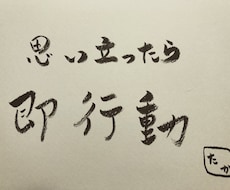 思い立ったら
即行動
たか